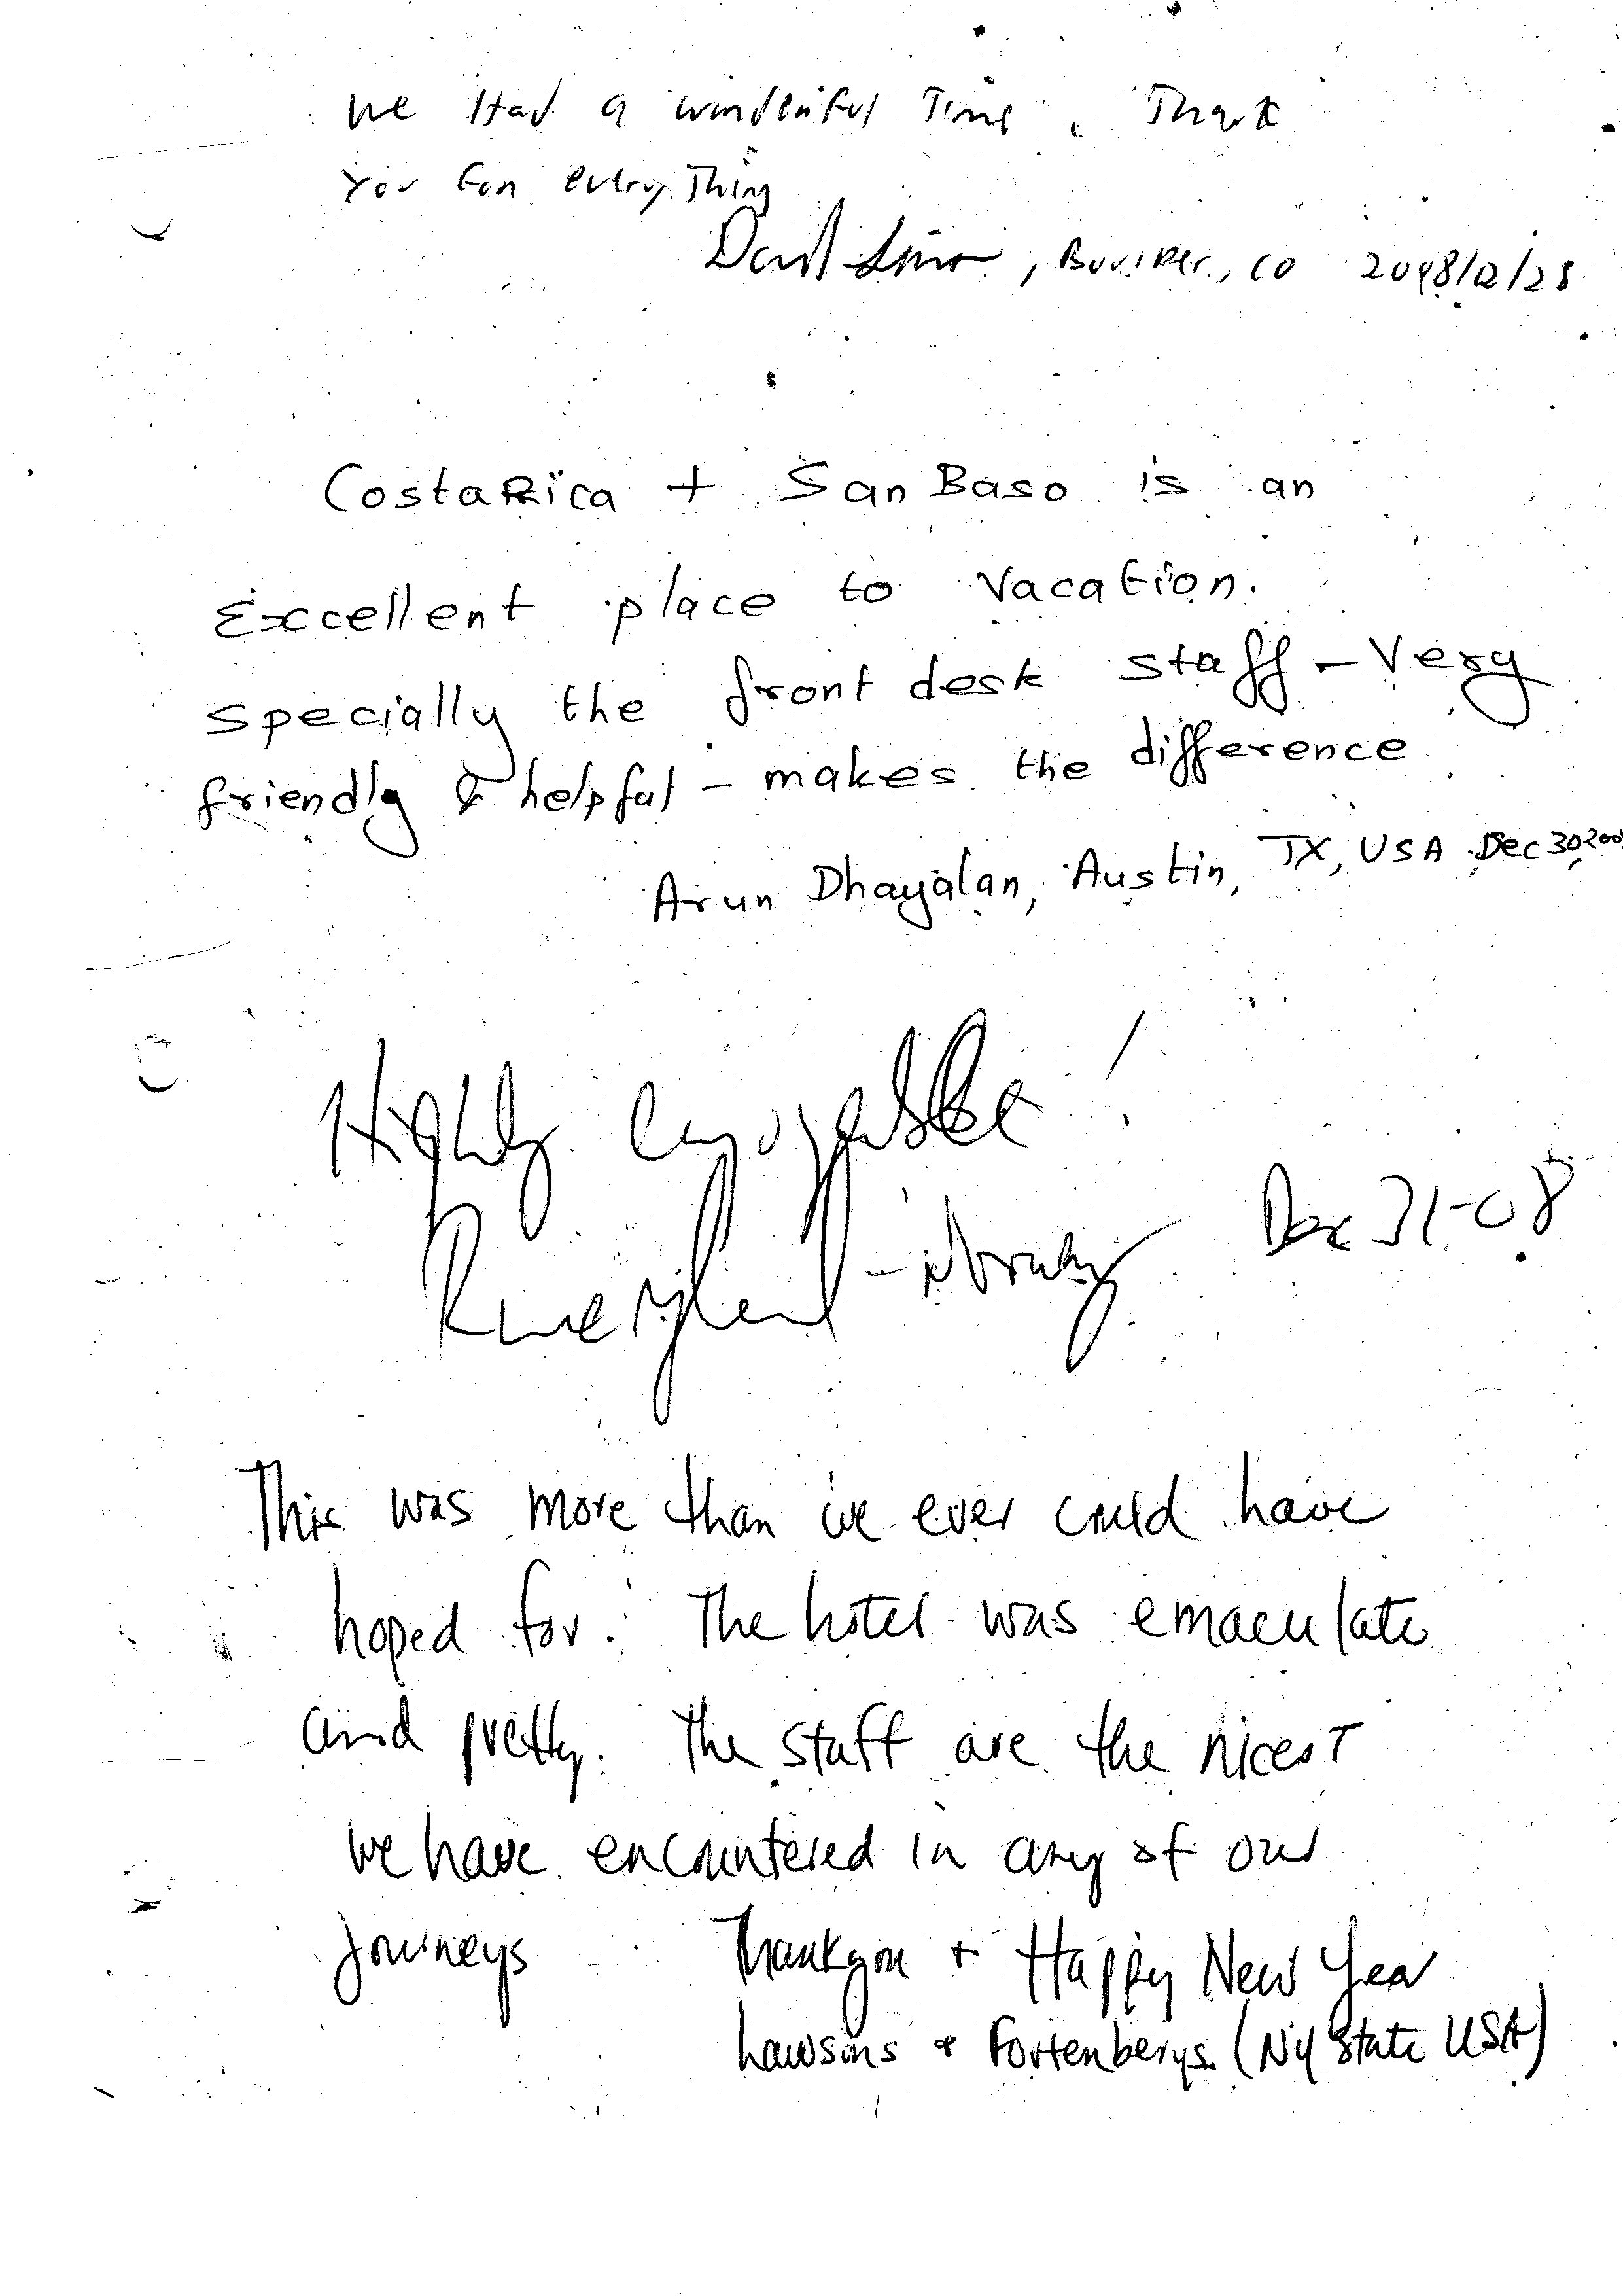 We Had a wonderful Time, Thank
You For everything
David, Boulder, CO 2008/12/28
Costa Rica + San Baso is an
Excellent place to vacation.
specially the front desk staff – very
friendly & helpful – makes the difference
Arun Dhayalan, Austin, TX, USA Dec 30, 200
Highly enjoyable!
Norway Dec 31-08
This was more than we ever could have
hoped for. The hotel was emaculate
and pretty. The staff are the nicest
we have encountered in any of our
journeys Thankyou + Happy New Year
Lawsons & Fortenberys (NY State USA)